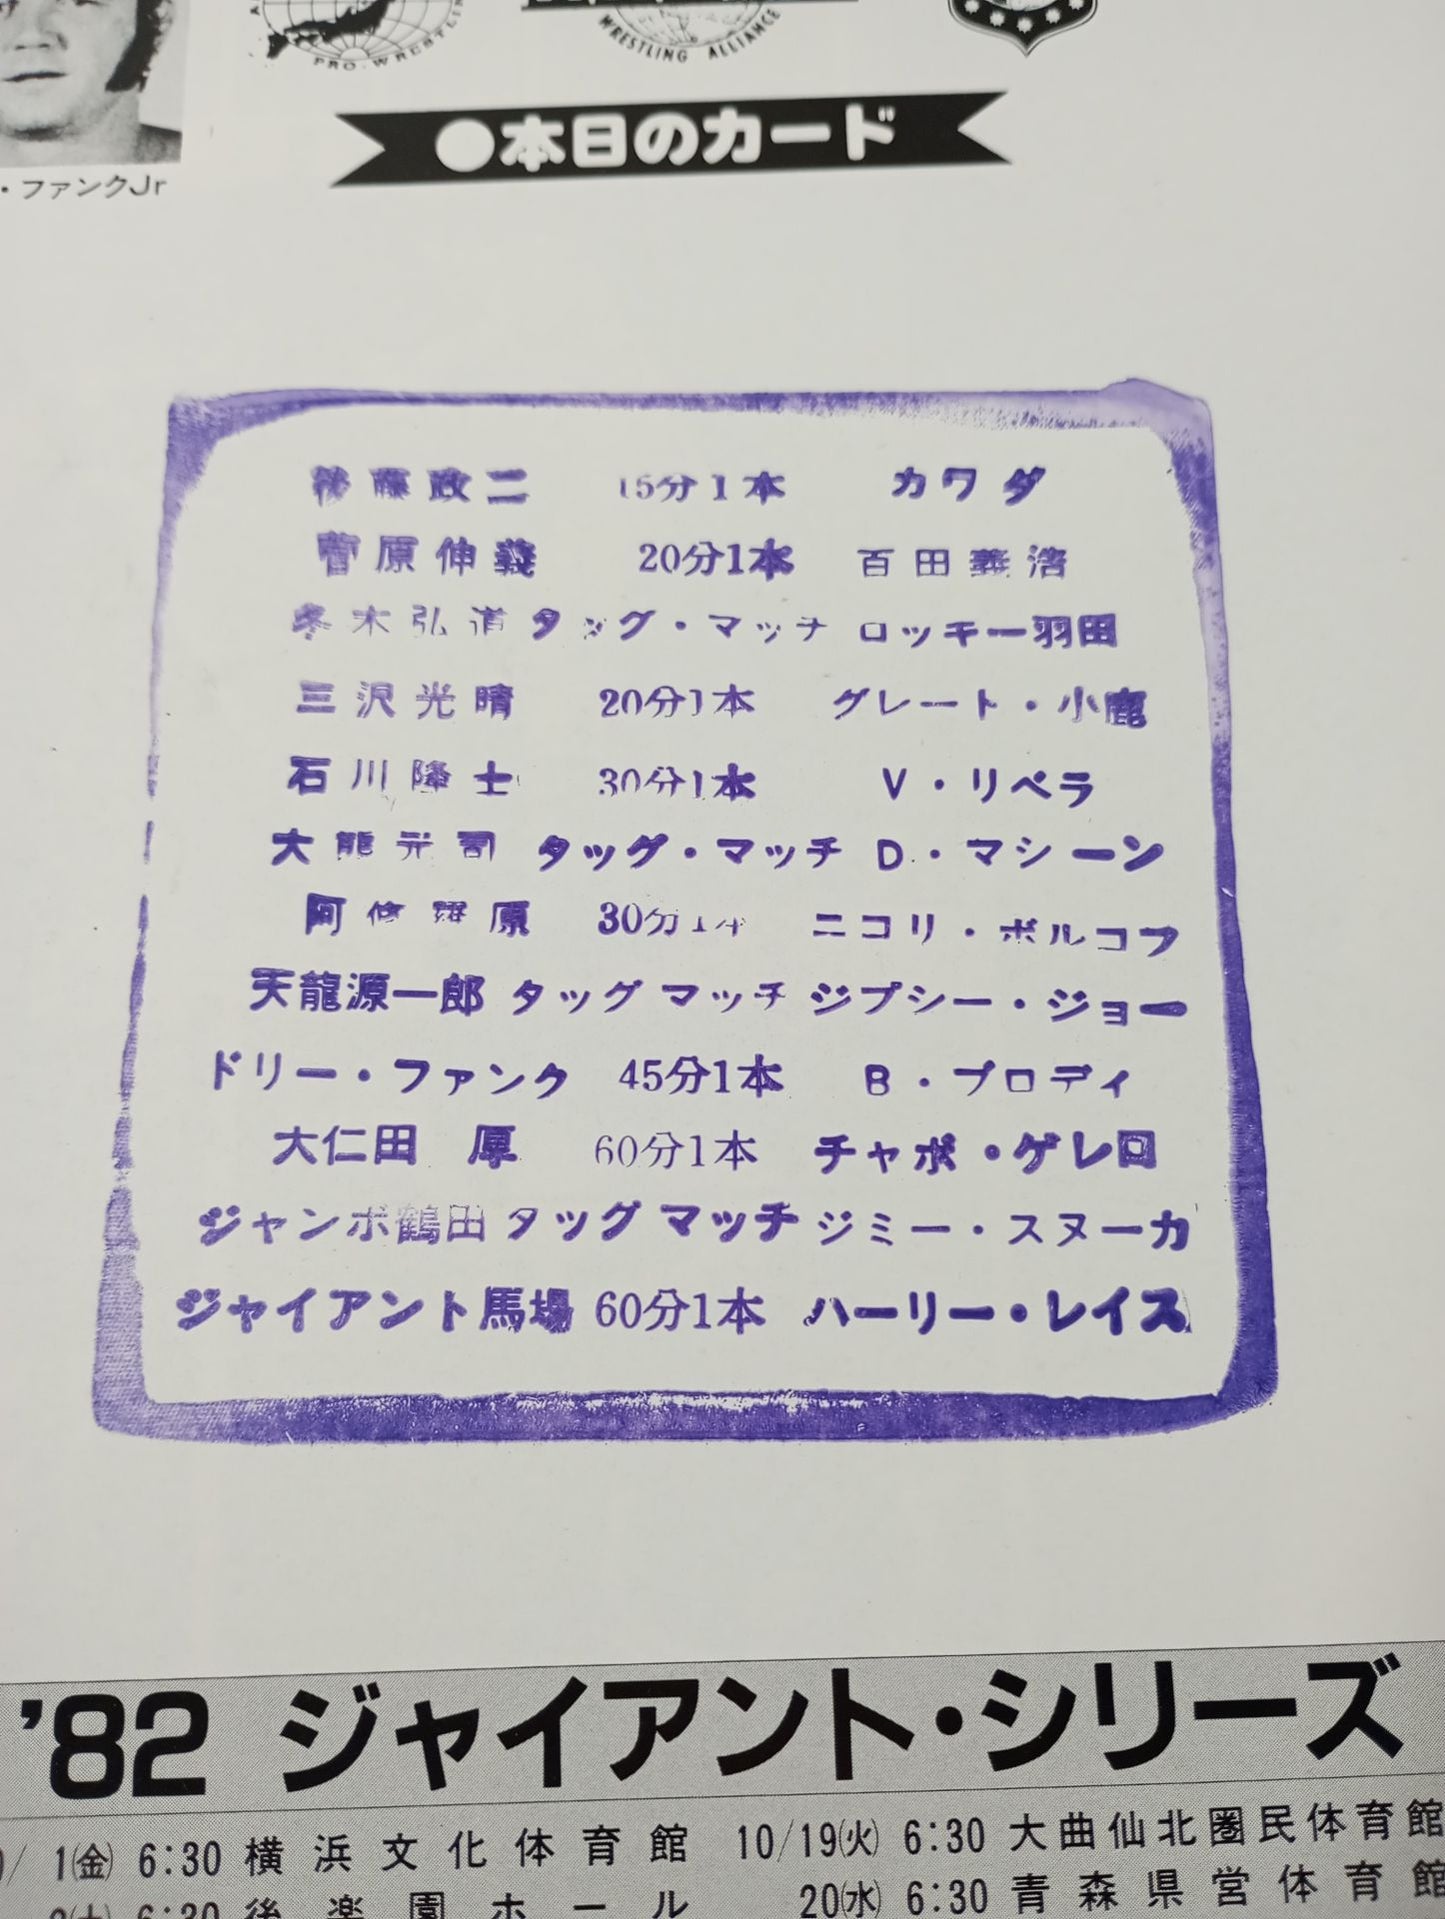 PRO-WRESTLIN
WRESTLING ALLIANCE
・ファンクJr
●本日のカード
後藤政二 15分1本 カワダ
菅原伸義 20分1本 百田義浩
冬木弘道 タッグ・マッチ ロッキー羽田
三沢光晴 20分1本 グレート・小鹿
石川隆士 30分1本 V・リベラ
大熊元司 タッグ・マッチ D.・マシーン
阿修羅原 30分1本 ニコリ・ボルコフ
天龍源一郎 タッグ マッチ ジプシー・ジョー
ドリー・ファンク 45分1本 B・ブロディ
大仁田 厚 60分1本 チャボ・ゲレロ
ジャンボ鶴田 タッグ マッチ ジミー・スヌーカ
ジャイアント馬場 60分1本 ハーリー・レイス
'82 ジャイアント・シリーズ
/ 1㈮ 6:30 横浜文化体育館 10/19㈫ 6:30 大曲仙北圏民体育館
2㈯ 6:30 後楽園ホール 20㈬ 6:30 青森県営体育館